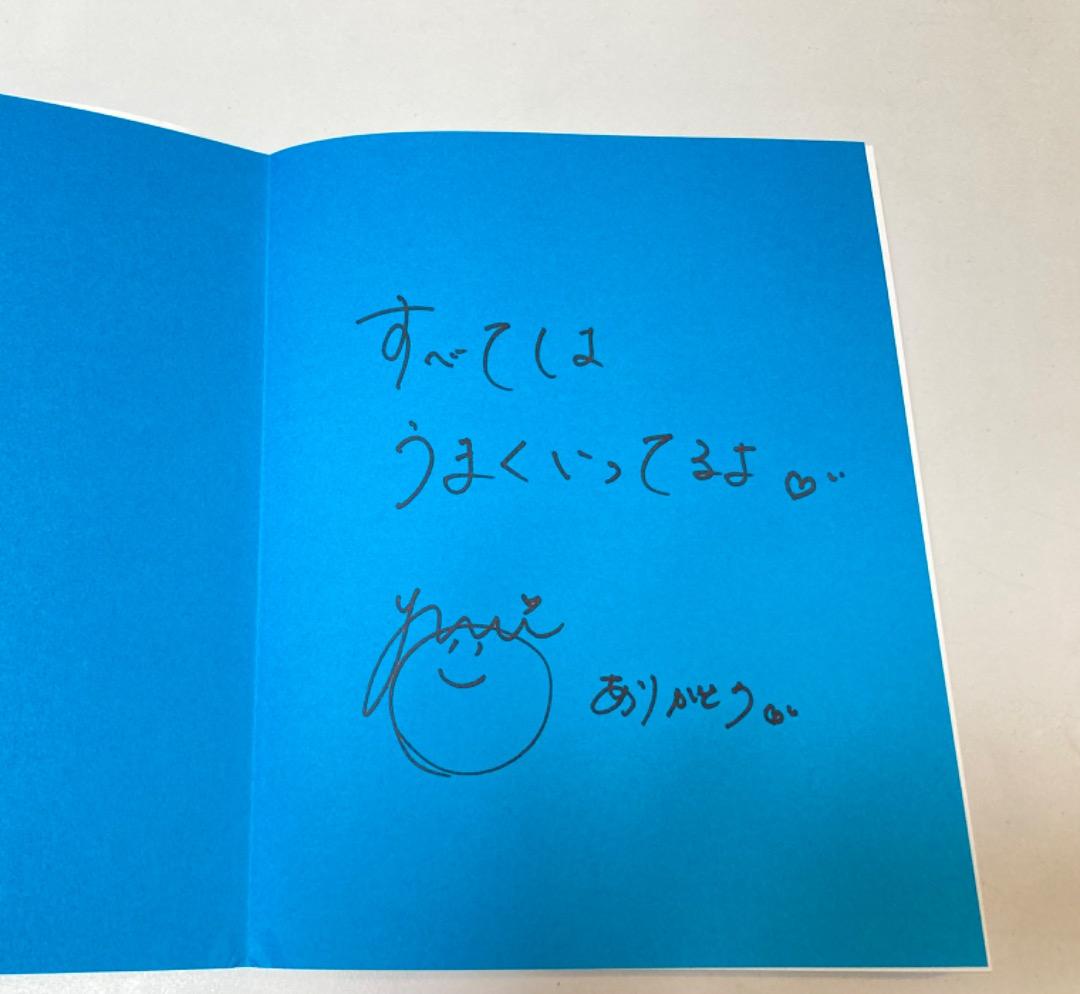 すべては
うまくいってるよ♡
ありがとう♡